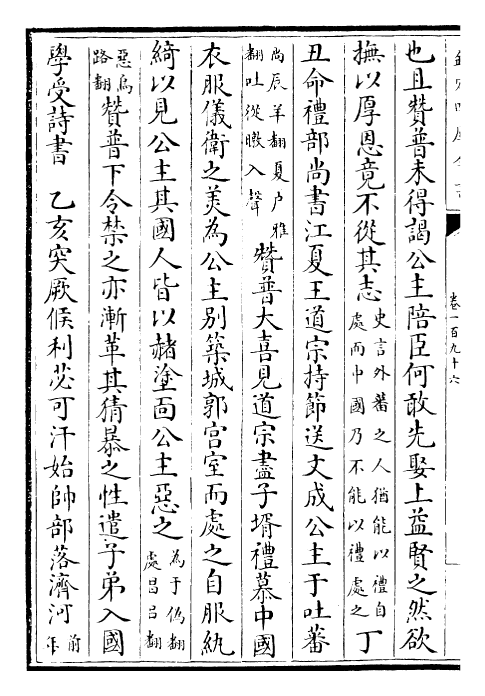 欽定四庫全書
卷一百九十六
也且贊普未得謁公主陪臣何敢先娶上益賢之然欲
撫以厚恩竟不從其志史言外蕃之人猶能以禮自處而中國乃不能以禮處之丁
丑命禮部尚書江夏王道宗持節送文成公主于吐蕃
尚辰羊翻夏户雅翻吐從暾入聲贊普大喜見道宗盡子壻禮慕中國
衣服儀衛之美為公主别築城郭宫室而處之自服紈
綺以見公主其國人皆以赭塗面公主惡之為于偽翻處昌吕翻
惡烏路翻贊普下令禁之亦漸革其猜暴之性遣子弟入國
學受詩書 乙亥突厥候利苾可汗始帥部落濟河前年